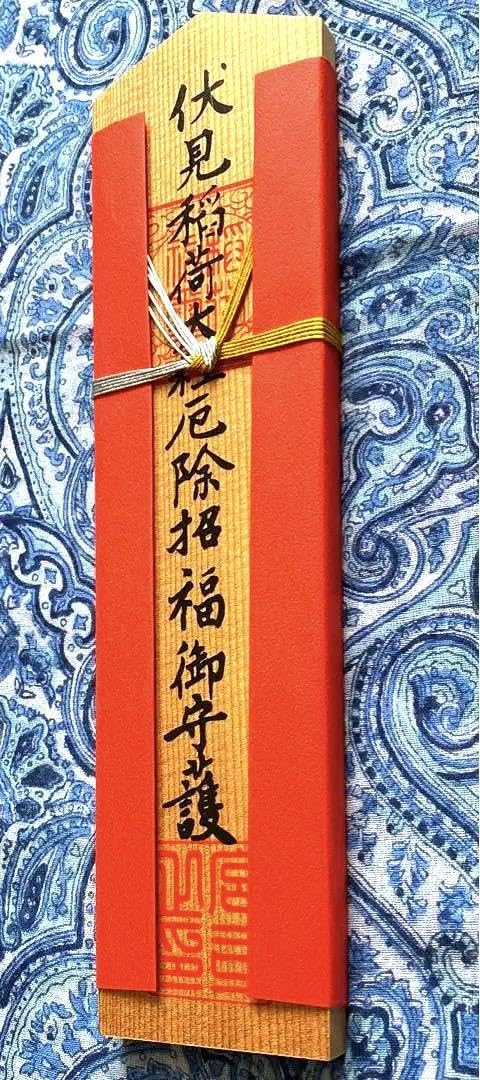 伏見稲荷大社厄除招福御守護